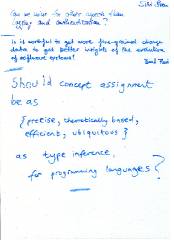 Can we mine for other aspects than
logging and authentication?
Is is worthful to get more fine-grained change
data to get better insights of the evolution
of software systems?
Should concept assignment
be as
{precise, theoretically based,
efficient, ubiquitous}
as type inference
for programming languages?